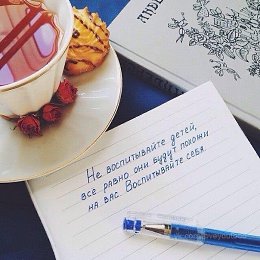 Не воспитывайте детей,
все равно они будут похожи
на вас. Воспитывайте себя.